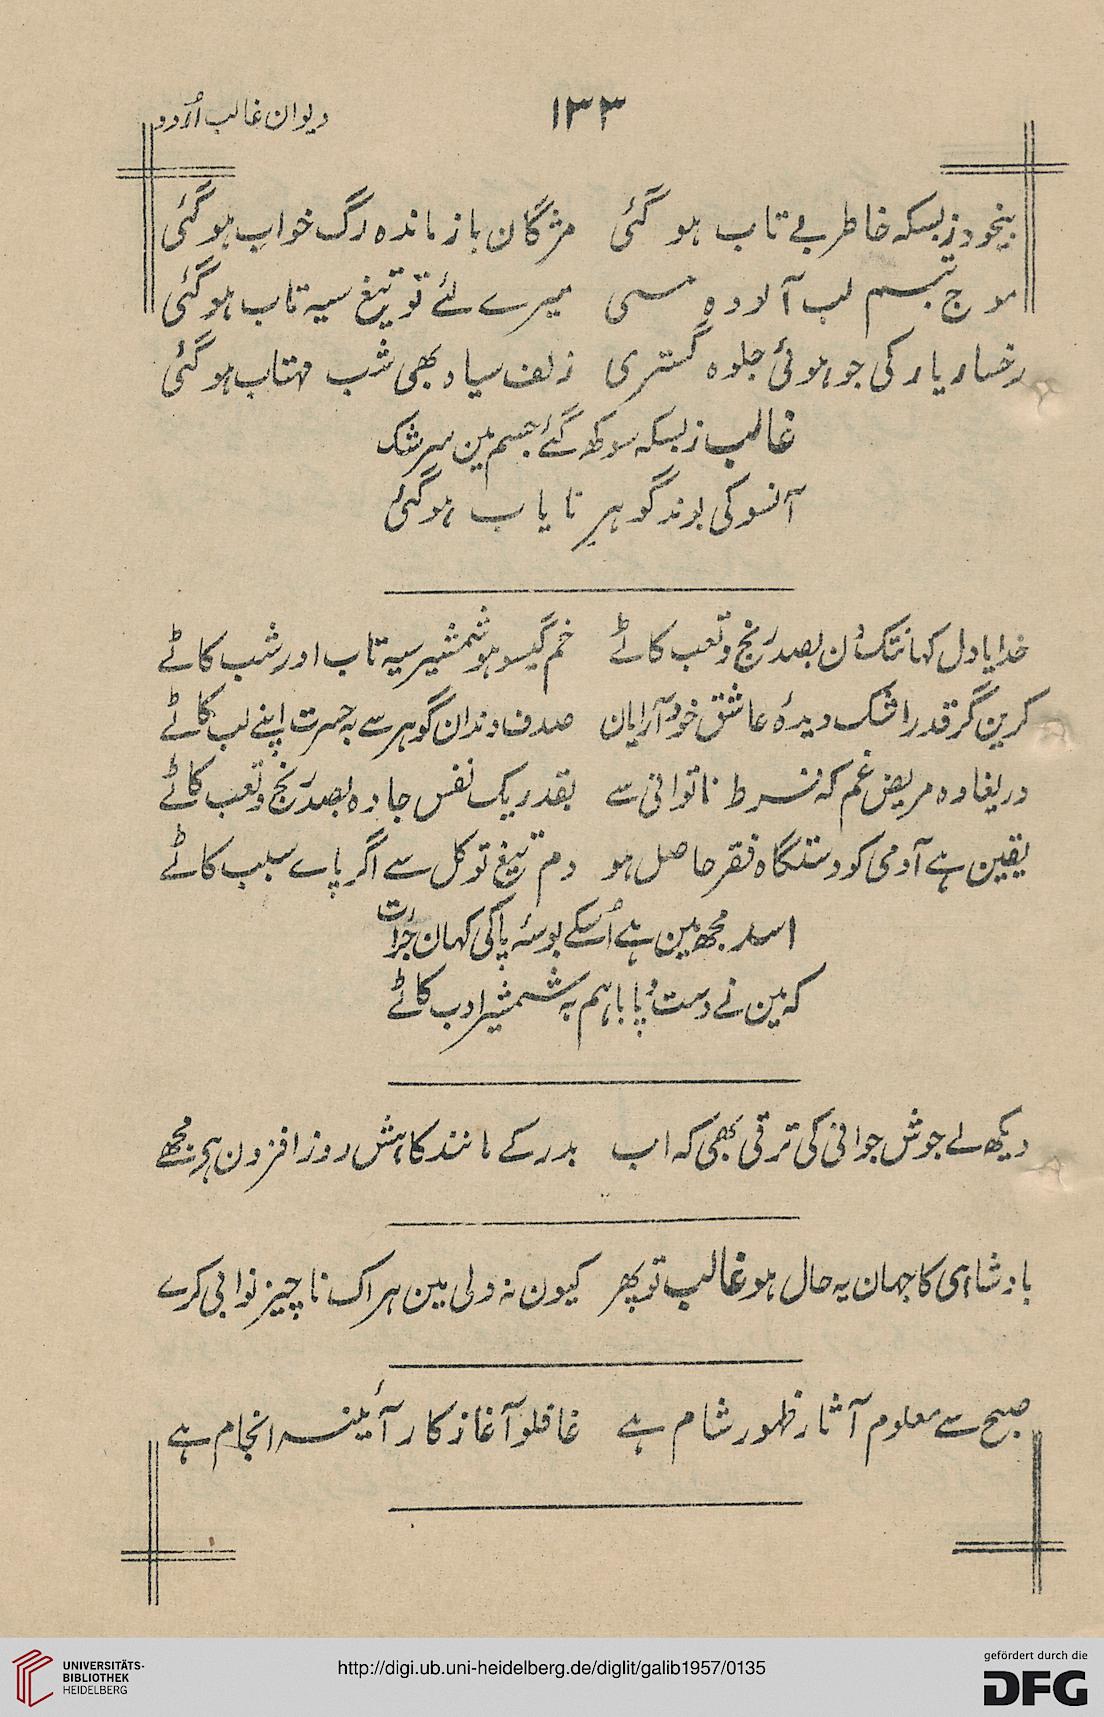 ۱۳۳
دیوان غالب اُردو
بیخود زبسکہ خاطر بے تاب ہو گئی مژگان باز ماندہ رگ خواب ہو گئی
موج تبسم لب آلودہ مسی میرے لئے تو تیغ سیہ تاب ہو گئی
رخسار یار کی جو ہوئی جلوہ گستری زلف سیاہ بھی شب مہتاب ہو گئی
غالب زبسکہ سوکھ گئے جسم مین سرشک
آنسو کی بوند گوہر نایاب ہو گئی
خدایا دل کہانتک دن بصد رنج و تعب کاٹے خم گیسو ہو شمشیر سیہ تاب اور شب کاٹے
کرین گر قدر اشک دیدۂ عاشق خود آرایان صدف دندان گوہر سے بہ حسرت اپنے لب کاٹے
دریغا وہ مریض غم کہ فرط ناتوانی سے بقدر یک نفس جادہ بصد رنج و تعب کاٹے
یقین ہے آدمی کو دستگاہ فقر حاصل ہو دم تیغ توکل سے اگر پاے سبب کاٹے
اسد مجھ مین ہے اُسکے بوسۂ پا کی کہان جرأت
کہ مین نے دست و پا باہم بہ شمشیر ادب کاٹے
دیکھ لے جوش جوانی کی ترقی بھی کہ اب بدر کے مانند کاہش روز افزون ہے مجھے
بادشاہی کا جہان یہ حال ہو غالب تو پھر کیون نہ دلی مین ہر اک ناچیز نوابی کرے
صبح سے معلوم آثار ظہور شام ہے غافلو آغاز کار آئینہ انجام ہے
UNIVERSITÄTS-
BIBLIOTHEK
HEIDELBERG
http://digi.ub.uni-heidelberg.de/diglit/galib1957/0135
gefördert durch die
DFG